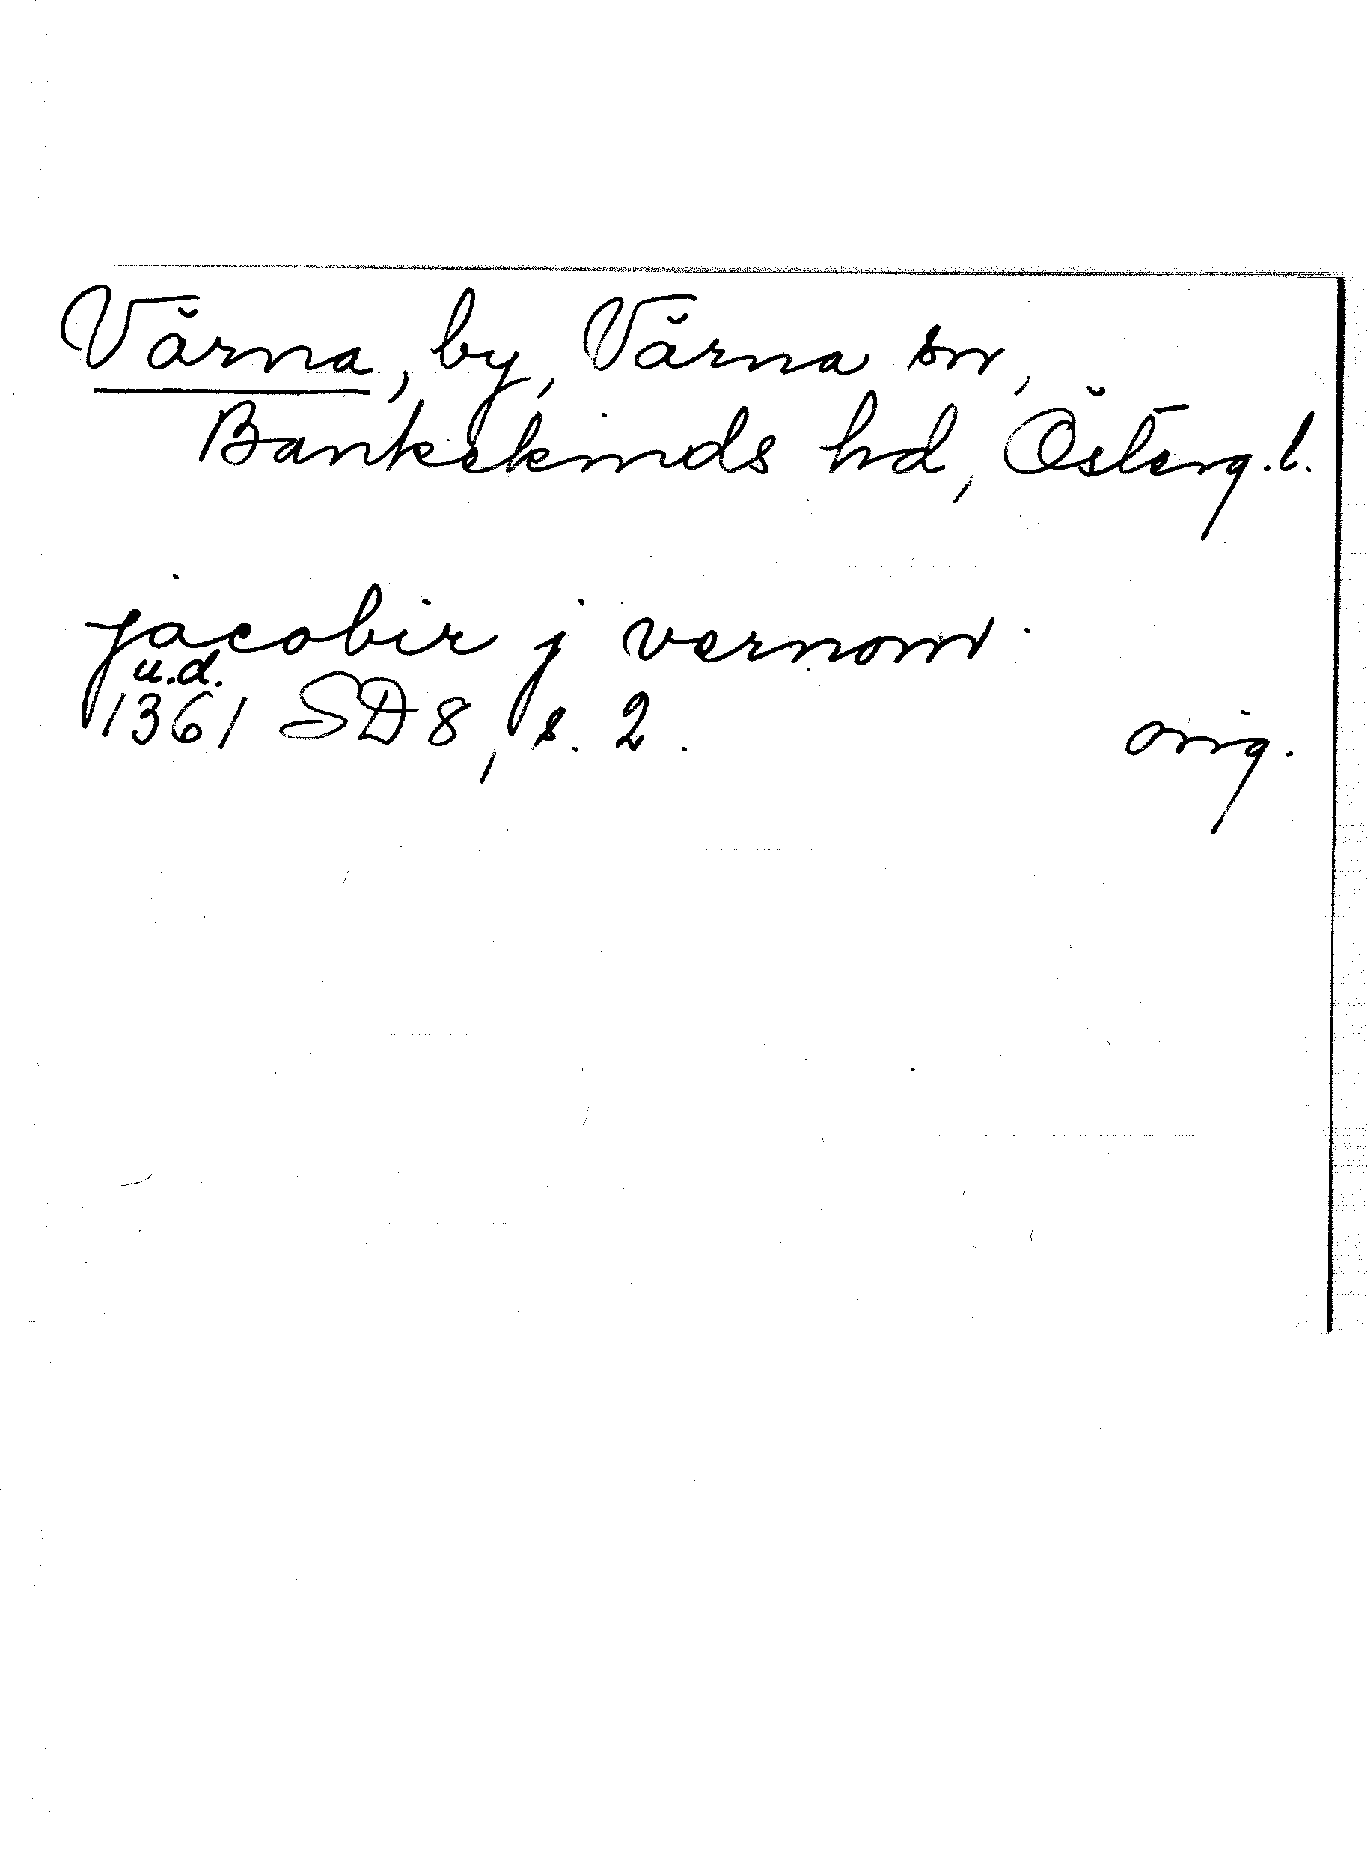 Värna, by, Värna sn,
Bankekinds hd, Österg.l.
jacobir j vernom
u.d.
1361 SD 8, s. 2. orig.